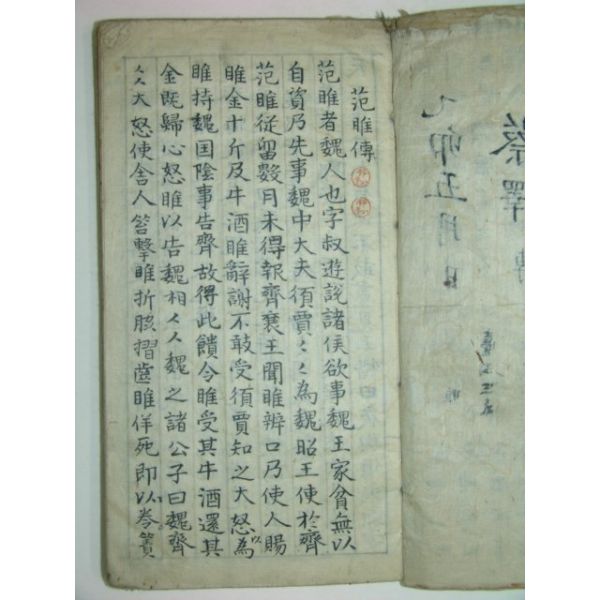 乙卯五月日
蔡澤傳
范睢傳
范睢者魏人也字叔遊說諸侯欲事魏王家貧無以
自資乃先事魏中大夫須賈〻〻為魏昭王使於齊
范睢從留數月未得報齊襄王聞睢辨口乃使人賜
睢金十斤及牛酒睢辭謝不敢受須賈知之大怒以為
睢持魏国陰事告齊故得此饋令睢受其牛酒還其
金旣歸心怒睢以告魏相〻〻魏之諸公子曰魏齊
〻〻大怒使舍人笞擊睢折脇摺齒睢佯死即以卷簀